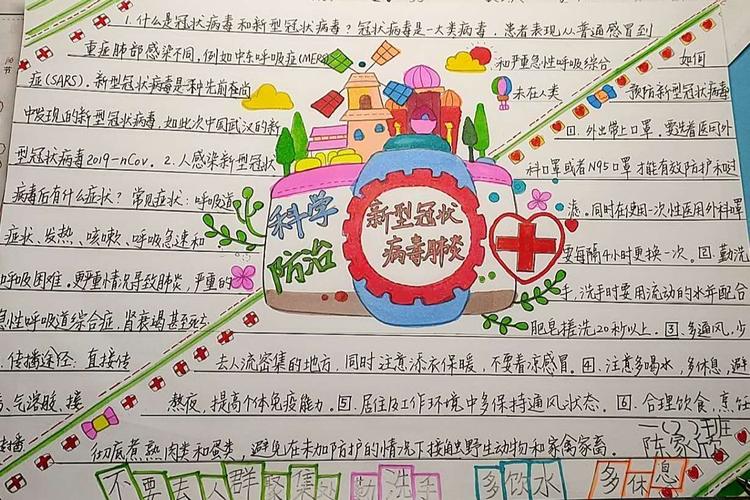 1. 什么是冠状病毒和新型冠状病毒？冠状病毒是一大类病毒，患者表现从普通感冒到
重症肺部感染不同，例如中东呼吸症(MERS
和严重急性呼吸综合
症(SARS)。新型冠状病毒是一种先前在尚
未在人类
中发现的新型冠状病毒，如此次中国武汉的新
型冠状病毒2019-nCov。2.人感染新型冠状
病毒后有什么症状？常见症状：呼吸道
症状、发热、咳嗽、呼吸急速和
呼吸困难。更严重情况导致肺炎，严重的
急性呼吸道综合症，肾衰竭甚至死亡
传播途径：直接传
、气溶胶、接
传播
科学
防治
新型冠状
病毒肺炎
如何
预防新型冠状病毒
1. 外出带上口罩，要选者医用外
科口罩或者N95口罩才能有效防护和过
滤。同时在使用一次性医用外科口罩
要每隔4小时更换一次。2. 勤洗
手，洗手时要用流动的水并配合
肥皂搓洗20秒以上。3. 多通风，少
去人流密集的地方，同时注意添衣保暖，不要着凉感冒。4. 注意多喝水，多休息，避
熬夜，提高个体免疫能力。5. 居住及工作环境中多保持通风状态。6. 合理饮食，烹饪
彻底煮熟肉类和蛋类，避免在未加防护的情况下接触野生动物和家禽家畜。
一(2)班
陈家欣
不要去人群聚集处
勤洗手
多饮水
多休息